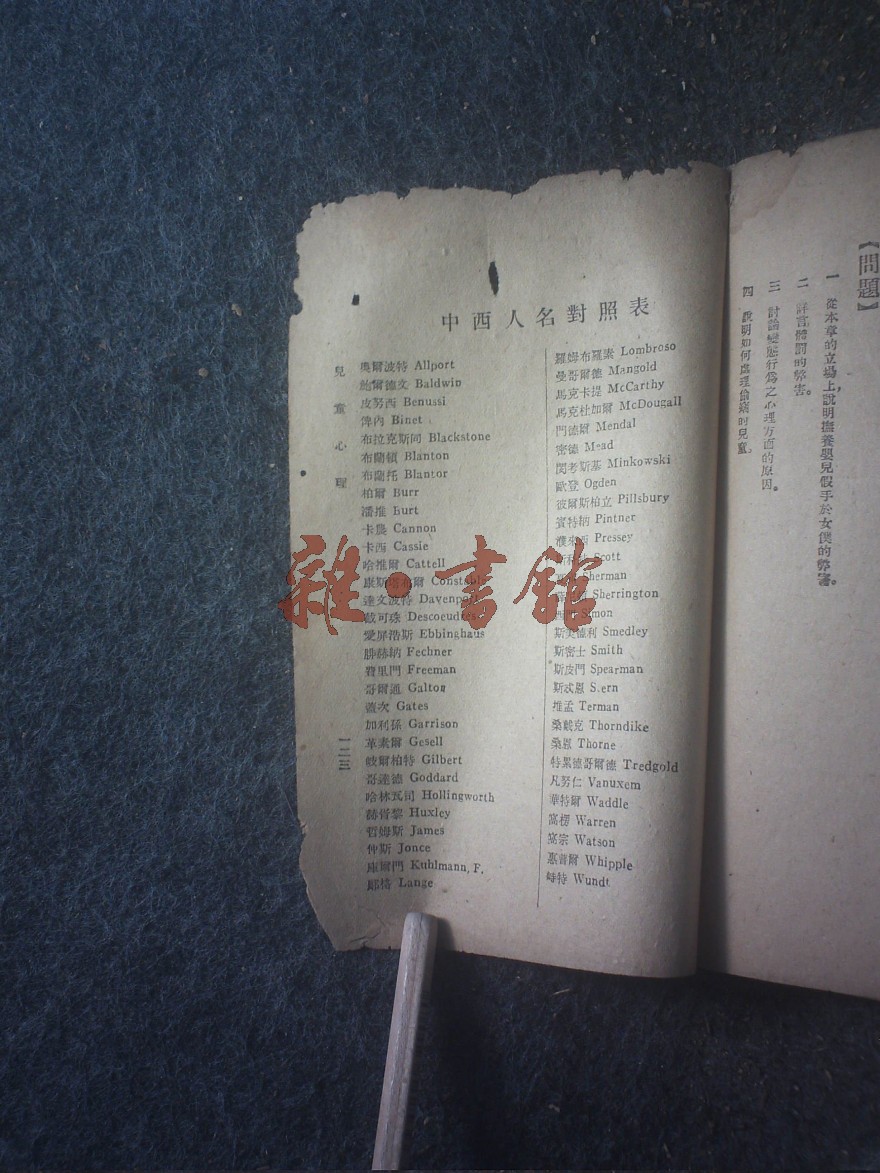 《問題》
一 從本章的立場上，說明撫養嬰兒假手於女僕的弊害。
二 詳言體罰的弊害。
三 討論變態行爲之心理方面的原因。
四 說明如何處理偷竊的兒童。
中西人名對照表
兒童心理
一二三
奧爾波特 Allport
鮑爾德文 Baldwin
皮努西 Benussi
俾內 Binet
布拉克斯同 Blackstone
布蘭頓 Blanton
布蘭托 Blantor
柏爾 Burr
Burt
卡農 Cannon
卡西 Cassie
Cattell
康斯 Constable
達文波特 Davenport
戴可珠 Descoeudres
愛屏浩斯 Ebbinghaus
Fechner
費里門 Freeman
哥爾通 Galton
蓋次 Gates
加利孫 Garrison
革素爾 Gesell
岐爾柏特 Gilbert
哥達德 Goddard
哈林瓦司 Hollingworth
赫胥黎 Huxley
哲姆斯 James
仲斯 Jonce
庫爾門 Kuhlmann, F.
Lange
羅姆布羅素 Lombroso
曼哥爾德 Mangold
馬克卡提 McCarthy
馬克杜加爾 McDougall
門德爾 Mendal
密德 Mead
閔考斯基 Minkowski
歐登 Ogden
彼爾斯柏立 Pillsbury
賓特納 Pintner
濮來西 Pressey
Scott
Sherman
Sherrington
Simon
斯美德利 Smedley
斯密士 Smith
斯皮門 Spearman
斯忒恩 S.ern
推孟 Terman
桑戴克 Thorndike
桑恩 Thorne
特累德哥爾德 Tredgold
凡努仁 Vanuxem
華特爾 Waddle
窩楞 Warren
窩宗 Watson
惠普爾 Whipple
Wundt
雜·書館